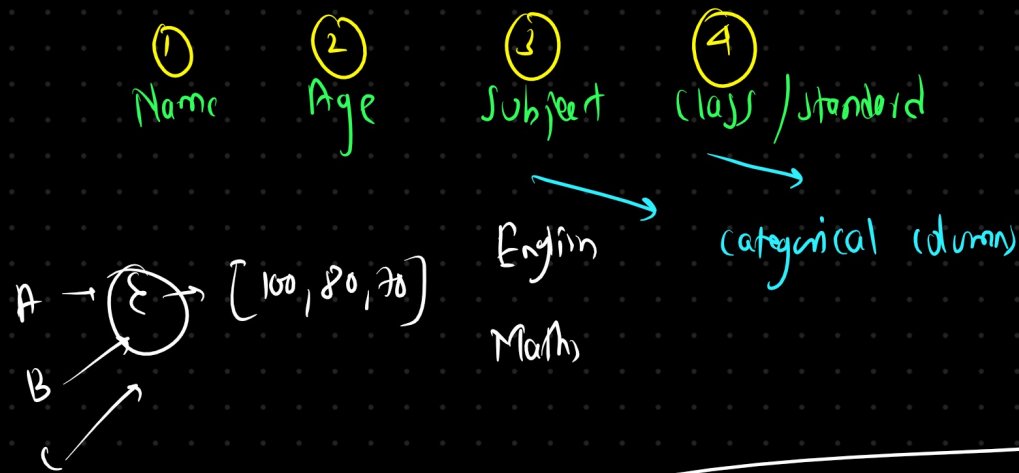 1 2 3 4
Name Age Subject Class / Standard
English categorical columns
A → E → [100, 80, 70]
Maths
B
C